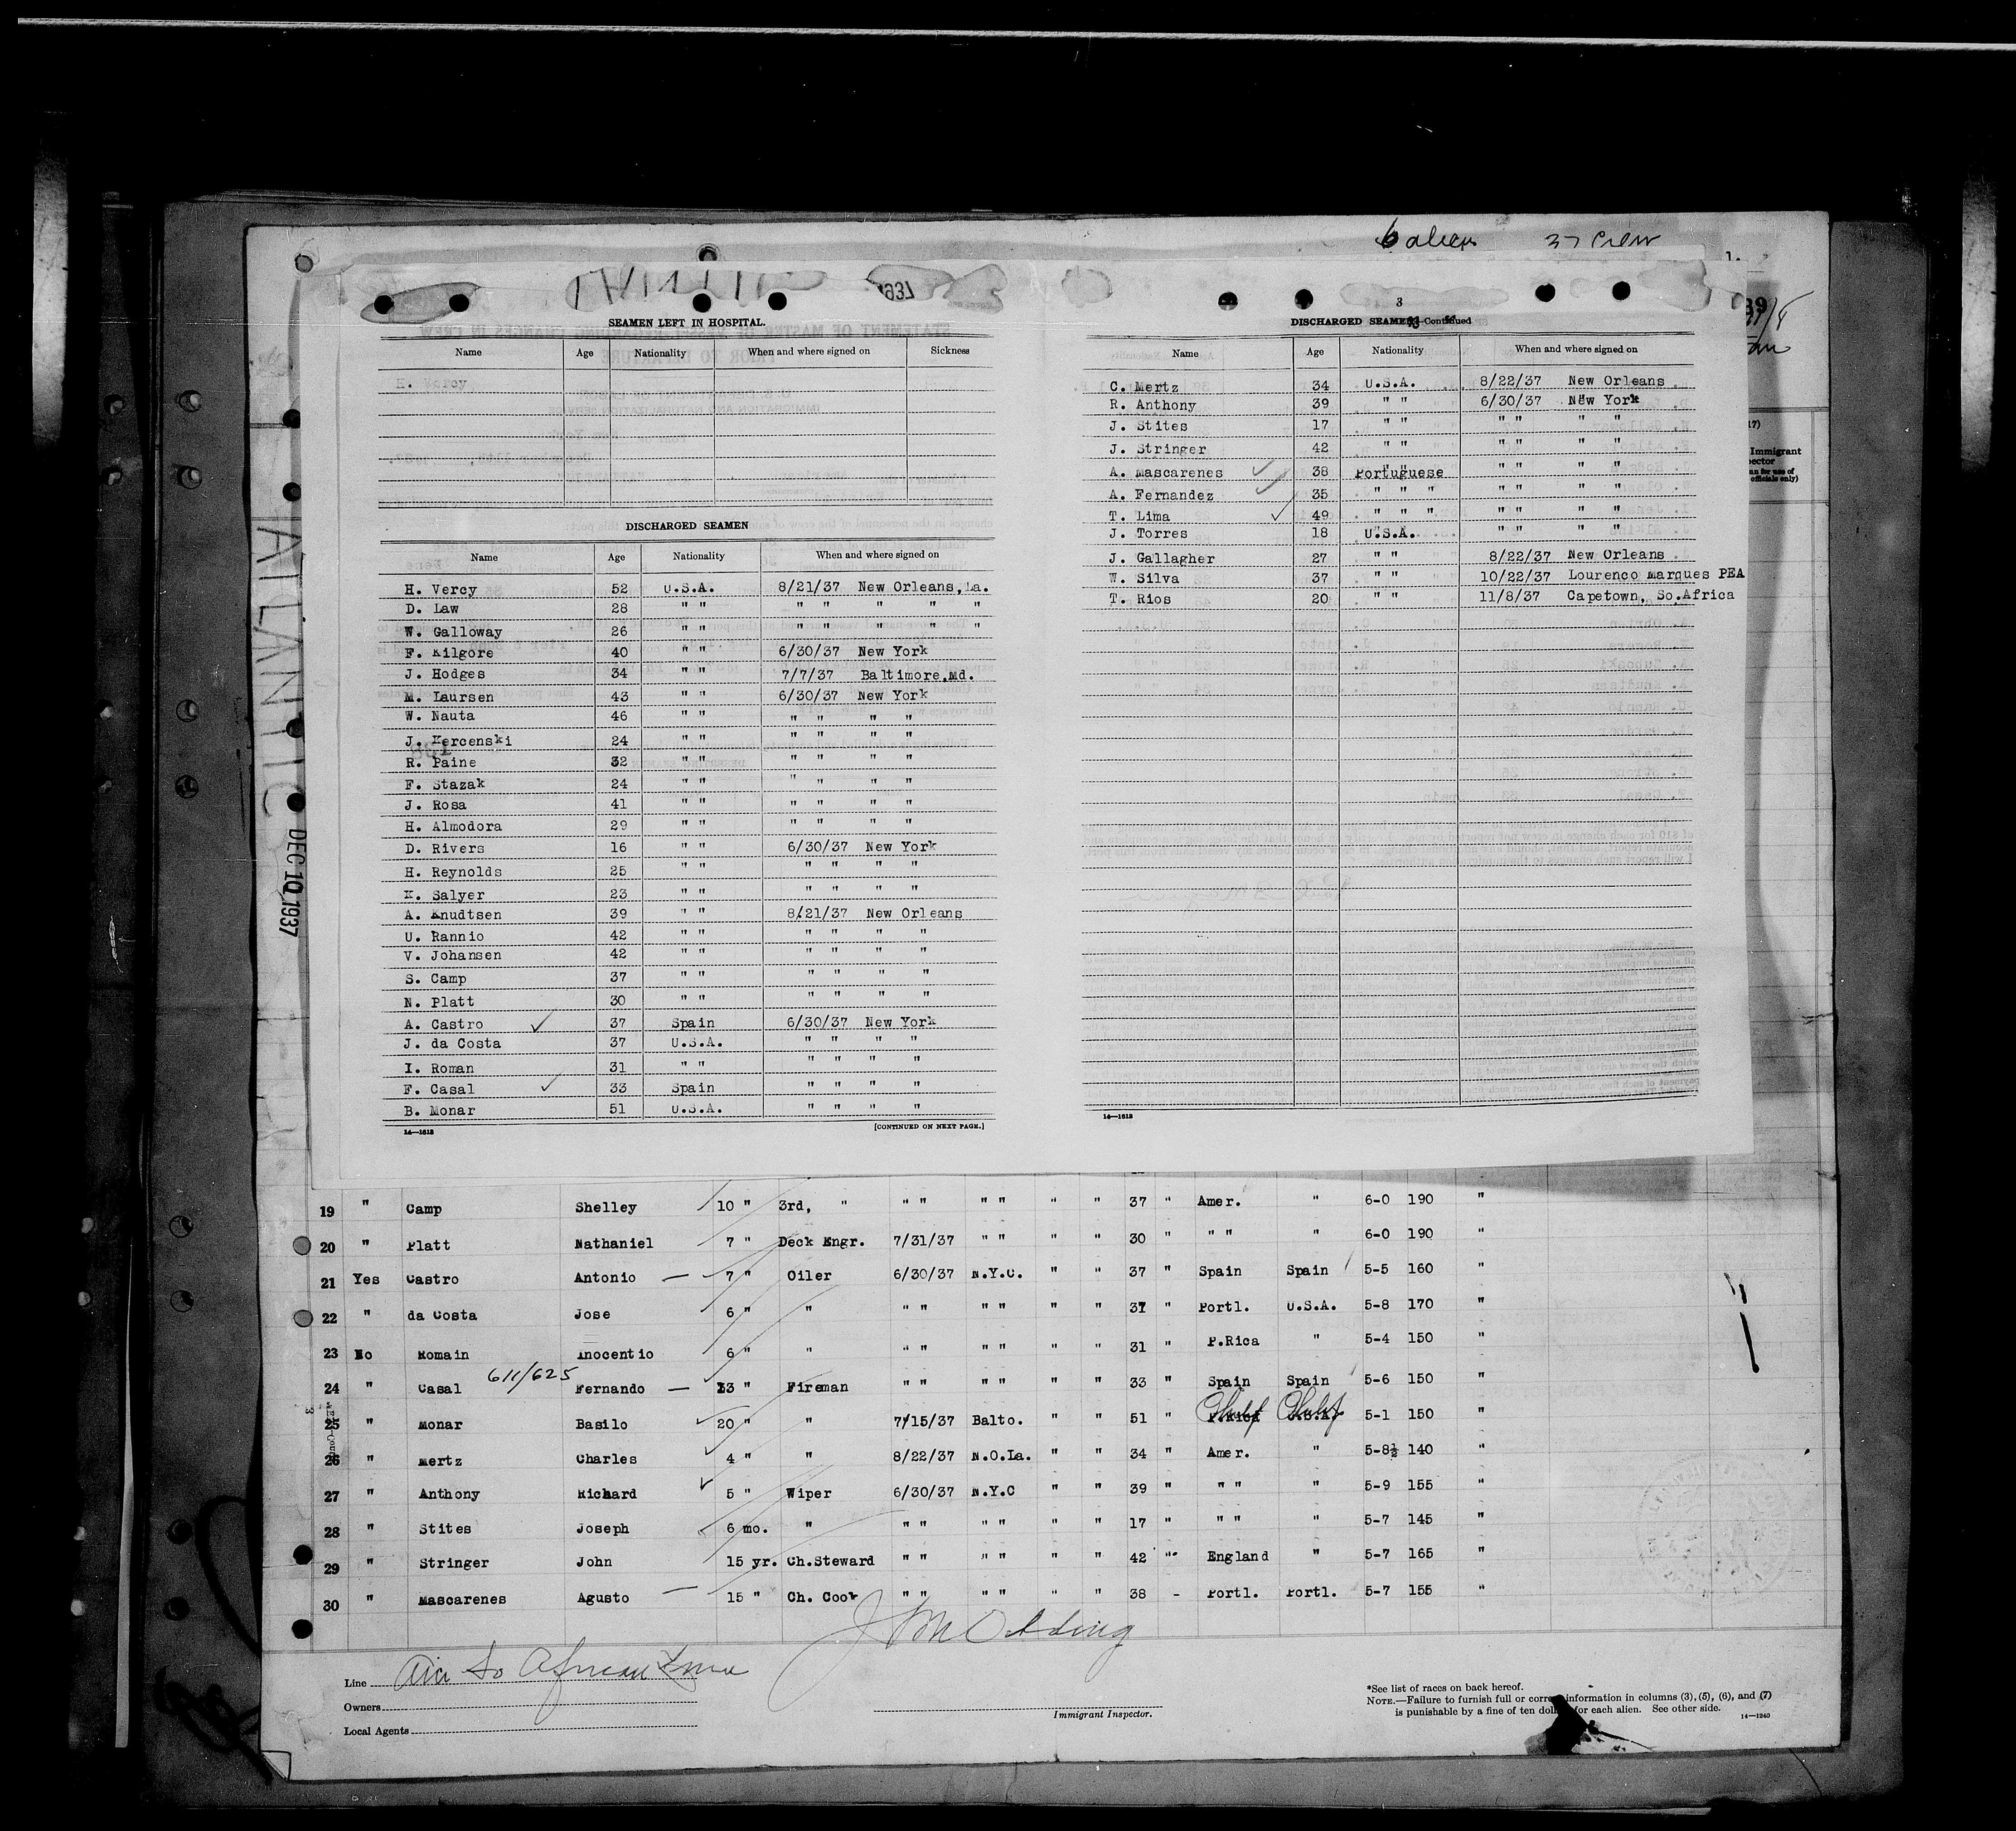 6 aliens 37 Crew
1937
SEAMEN LEFT IN HOSPITAL.
Name Age Nationality When and where signed on Sickness
H. Vercy
DISCHARGED SEAMEN
Name Age Nationality When and where signed on
H. Vercy 52 U.S.A. 8/21/37 New Orleans, La.
D. Law 28 " " " " " " "
W. Galloway 26 " " " " " " "
F. Kilgore 40 " " 6/30/37 New York
J. Hodges 34 " " 7/7/37 Baltimore,Md.
M. Laursen 43 " " 6/30/37 New York
W. Nauta 46 " " " " " "
J. Kercenski 24 " " " " " "
R. Paine 32 " " " " " "
F. Stazak 24 " " " " " "
J. Rosa 41 " " " " " "
H. Almodora 29 " " " " " "
D. Rivers 16 " " 6/30/37 New York
H. Reynolds 25 " " " " " "
K. Salyer 23 " " " " " "
A. Knudtsen 39 " " 8/21/37 New Orleans
U. Rannio 42 " " " " " "
V. Johansen 42 " " " " " "
S. Camp 37 " " " " " "
N. Platt 30 " " " " " "
A. Castro ✓ 37 Spain 6/30/37 New York
J. da Costa 37 U.S.A. " " " "
I. Roman 31 " " " " " "
F. Casal ✓ 33 Spain " " " "
B. Monar 51 U.S.A. " " " "
14—1613 [CONTINUED ON NEXT PAGE.]
3
DISCHARGED SEAMEN—Continued
Name Age Nationality When and where signed on
C. Mertz 34 U.S.A. 8/22/37 New Orleans
R. Anthony 39 " " 6/30/37 New York
J. Stites 17 " " " " " "
J. Stringer 42 " " " " " "
A. Mascarenes ✓ 38 Portuguese " " " "
A. Fernandez ✓ 35 " " " " " " "
T. Lima ✓ 49 " " " " " " "
J. Torres 18 U.S.A. " " " "
J. Gallagher 27 " " 8/22/37 New Orleans
W. Silva 37 " " 10/22/37 Lourenco Marques PEA
T. Rios 20 " " 11/8/37 Capetown, So.Africa
14—1613
ATLANTIC
DEC 10 1937
19 " Camp Shelley 10 " 3rd, " " " " " " " 37 " Amer. " 6-0 190 "
20 " Platt Nathaniel 7 " Deck Engr. 7/31/37 " " " " 30 " " " " 6-0 190 "
21 Yes Castro Antonio — 7 " Oiler 6/30/37 N.Y.C. " " 37 " Spain Spain 5-5 160 "
22 " da Costa Jose 6 " " " " " " " " 37 " Portl. U.S.A. 5-8 170 "
23 No Romain Inocentio 6 " " " " " " " " 31 " P.Rica " 5-4 150 "
24 " Casal 611/625 Fernando — 13 " Fireman " " " " " " 33 " Spain Spain 5-6 150 "
25 " Monar Basilo 20 " " 7/15/37 Balto. " " 51 " 5-1 150 "
26 " Mertz Charles 4 " " 8/22/37 N.O.La. " " 34 " Amer. " 5-8½ 140 "
27 " Anthony Richard 5 " Wiper 6/30/37 N.Y.C " " 39 " " " " 5-9 155 "
28 " Stites Joseph 6 mo. " " " " " " " 17 " " " " 5-7 145 "
29 " Stringer John 15 yr. Ch.Steward " " " " " " 42 " England " 5-7 165 "
30 " Mascarenes Agusto — 15 " Ch. Cook " " " " " " 38 - Portl. Portl. 5-7 155 "
Line So African Line
Owners
Local Agents
Immigrant Inspector.
*See list of races on back hereof.
NOTE.—Failure to furnish full or correct information in columns (3), (5), (6), and (7)
is punishable by a fine of ten dollars for each alien. See other side. 14—1240